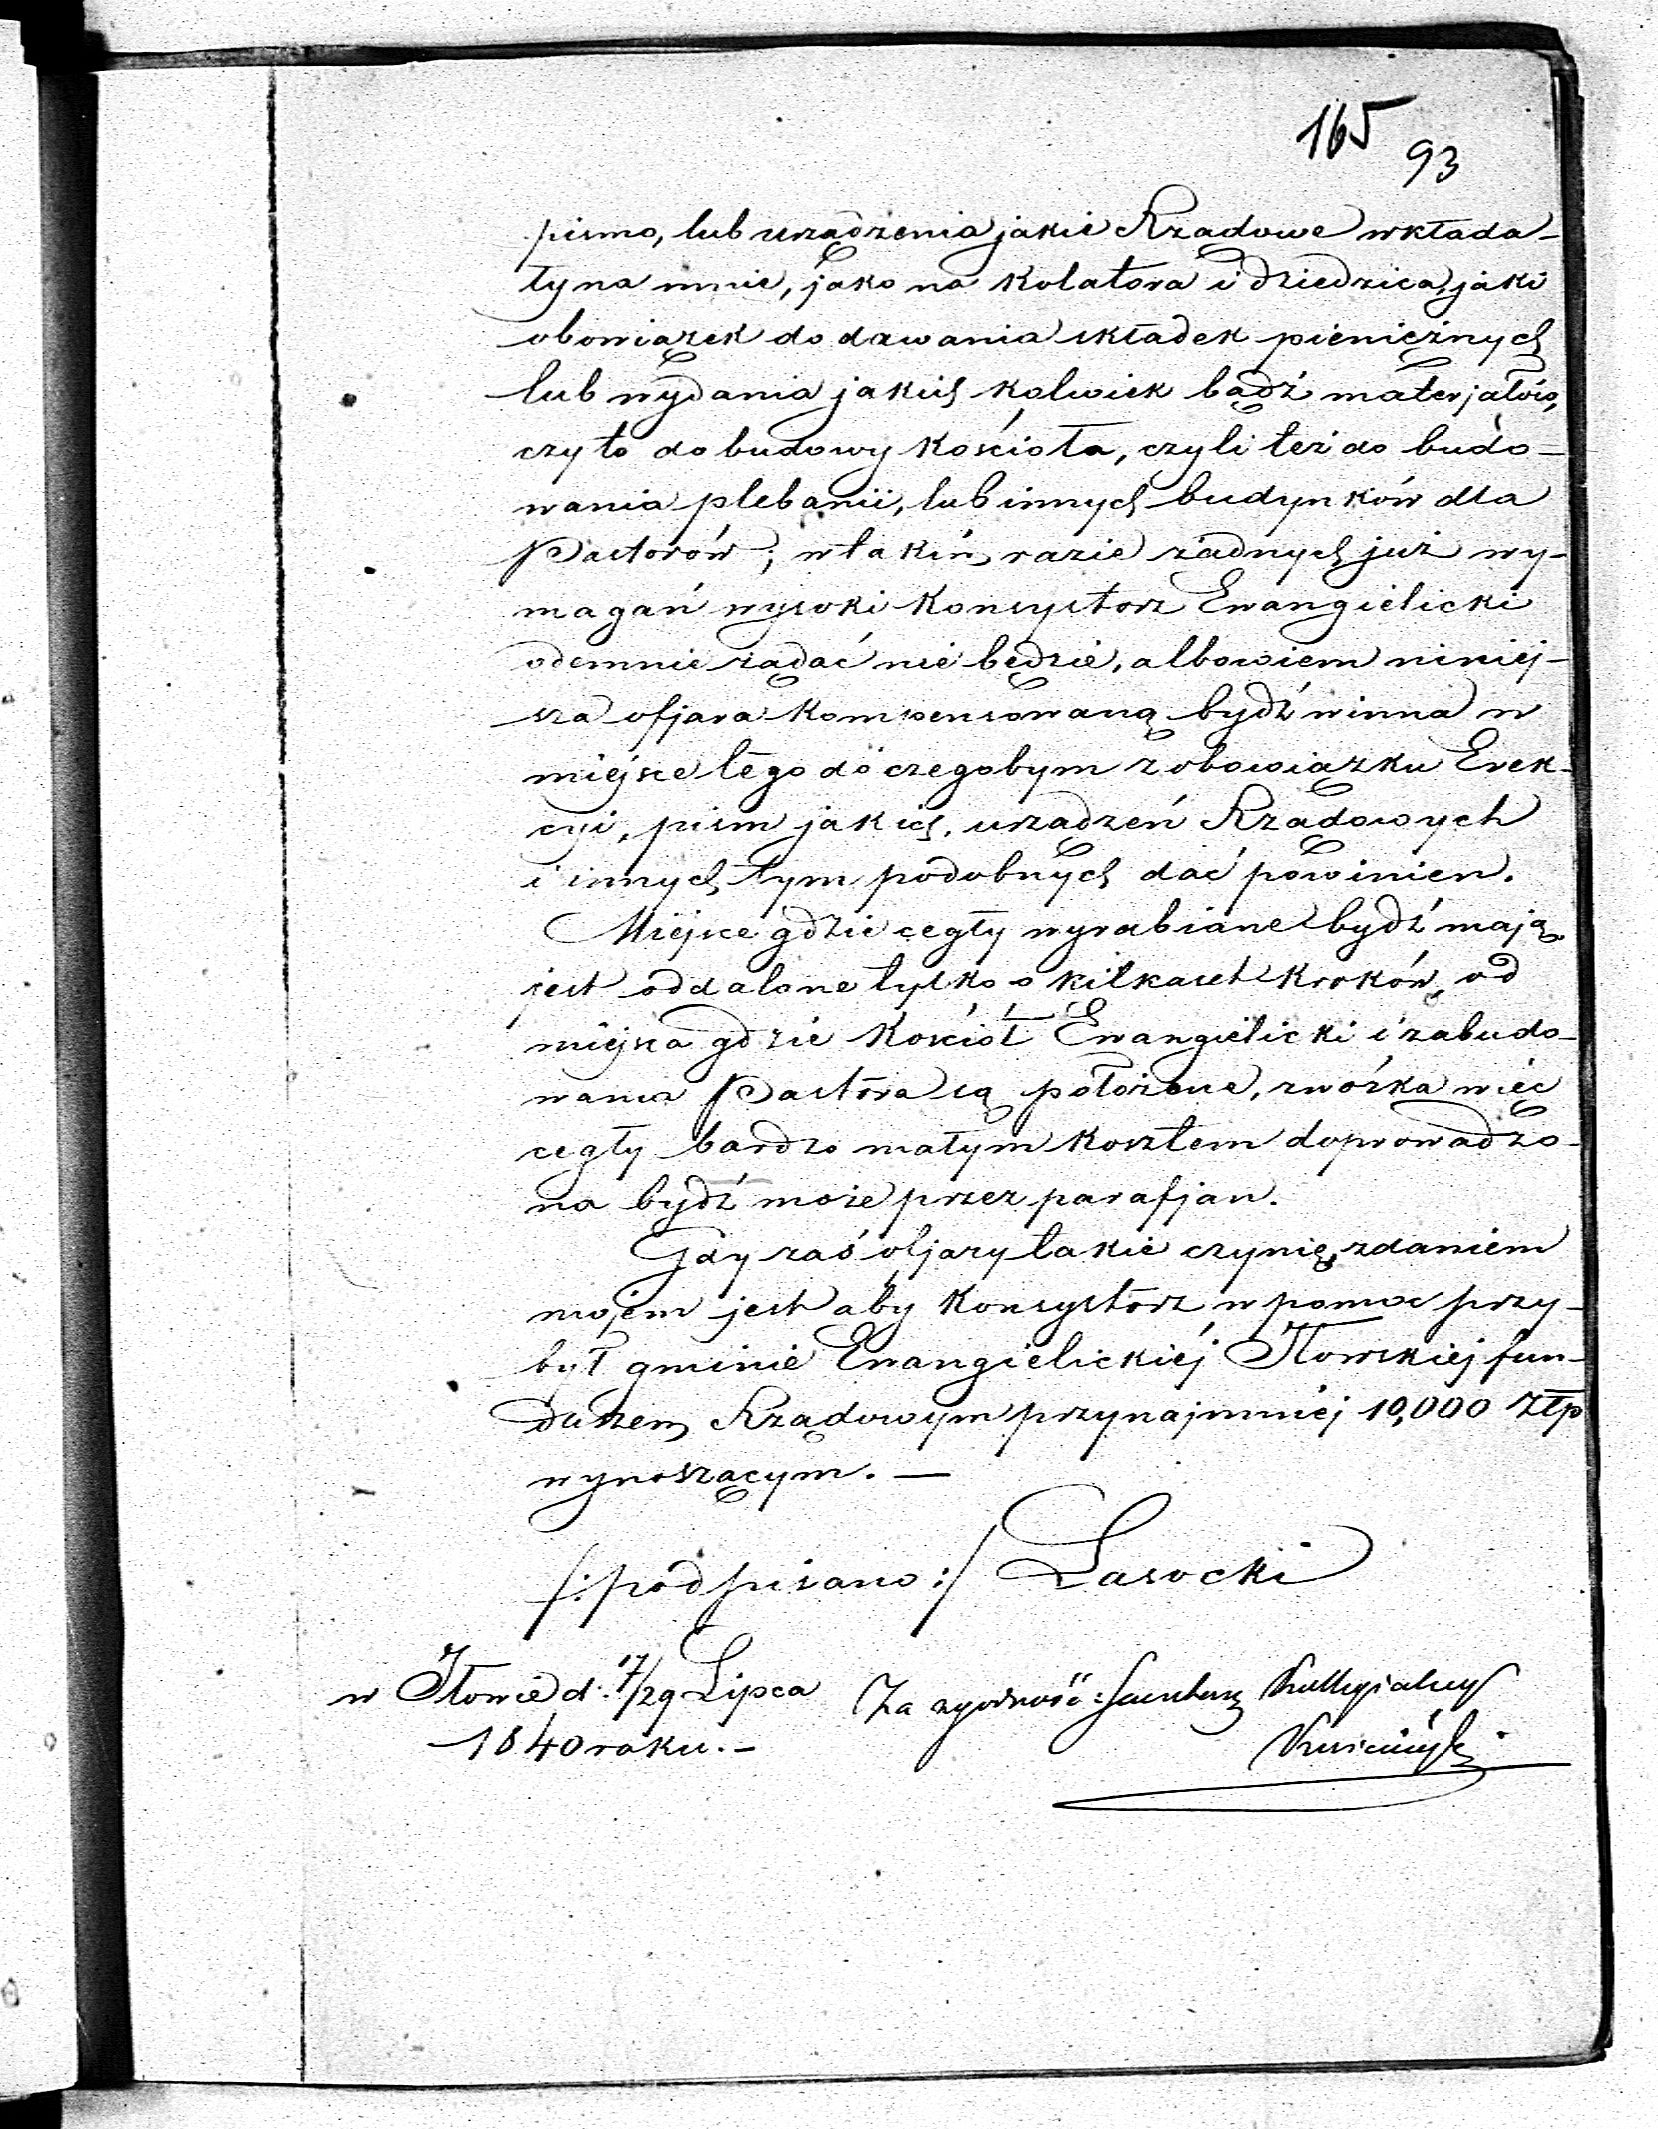 165
93
pismo, lub urządzenia jakie Rządowe wkłada-
ły na mnie, jako na Kolatora i dziedzica, jaki
obowiązek do dawania składek pieniężnych
lub wydania jakich kolwiek bądź materjałów,
czy to do budowy Kościoła, czyli też do budo-
wania plebanii, lub innych budynków dla
Pastorów; w takim razie żadnych już wy-
magań wysoki Konsystorz Ewangielicki
odemnie żądać nie będzie, albowiem niniej-
sza ofjara kompensowaną bydź winna w
miejsce tego do czegobym z obowiązku Erek-
cyi, pism jakich, urządzeń Rządowych
i innych tym podobnych dać powinien.
Miejsce gdzie cegły wyrabiane bydź mają
jest oddalone tylko o kilkaset kroków, od
miejsca gdzie Kościół Ewangielicki i zabudo-
wania Pastora są położone, zwózka więc
cegły bardzo małym kosztem doprowadzo-
na bydź może przez parafjan.
Gdy zaś ofjary takie czynię, zdaniem
mojem jest aby Konsystorz w pomoc przy-
był gminie Ewangielickiéj Iłowskiéj fun-
duszem Rządowym przynajmniéj 10,000 Złp
wynoszącym. —
/:podpisano:/ Lasocki
w Iłowie d. 17/29 Lipca
1840 roku. -
Za zgodność: Sekretarz Kollegialny